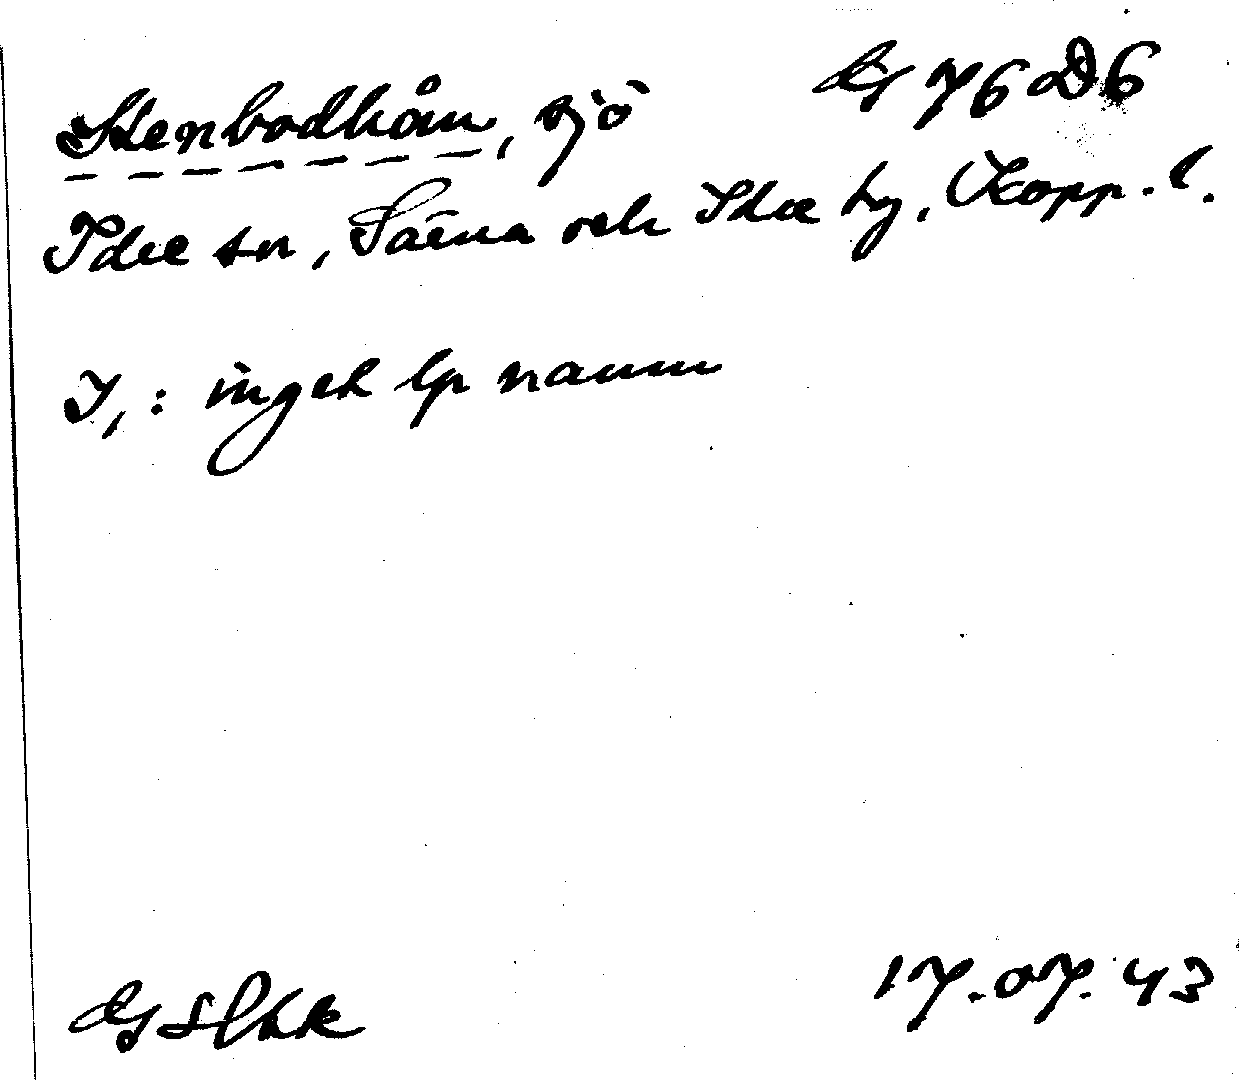 Stenbodhån, sjö
G 76 D 6
Idre sn, Särna och Idre hg, Kopp. l.
I, : inget lp namn
17.07.43